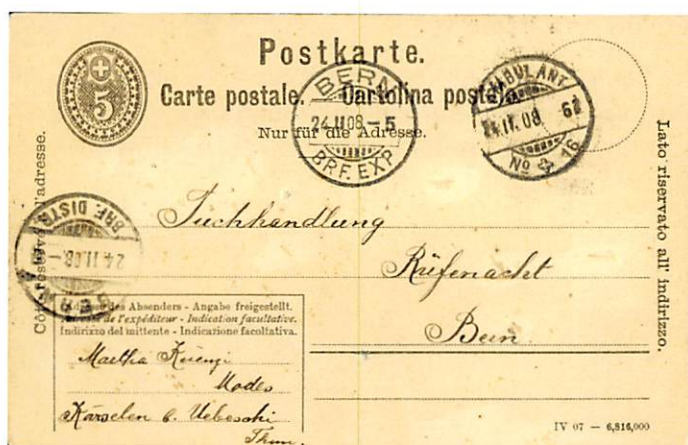 Postkarte.
Carte postale. Cartolina postale.
Nur für die Adresse.
5
BERN
24.II.08.-5
BRF. EXP.
AMBULANT
24.II.08
No 16
BRF. DISTR.
24.II.08.-
BERN
Côté réservé à l'adresse.
Lato riservato all' indirizzo.
Tuchhandlung
Rüfenacht
Bern
Adresse des Absenders - Angabe freigestellt.
Adresse de l'expéditeur - Indication facultative.
Indirizzo del mittente - Indicazione facoltativa.
Martha Küenzi
Modes
Kärselen b. Uebeschi
Thun.
IV 07 — 6,816,000